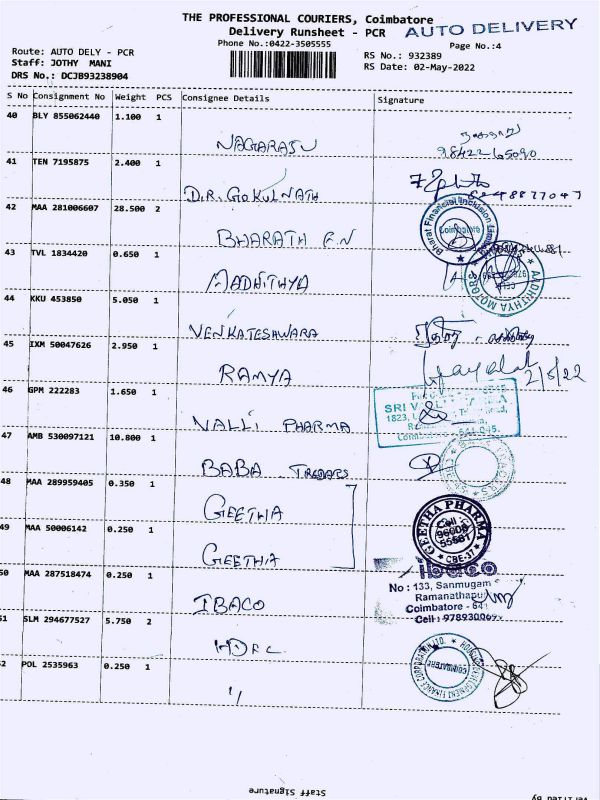 THE PROFESSIONAL COURIERS, Coimbatore
Delivery Runsheet - PCR
AUTO DELIVERY
Phone No.:0422-3505555
Page No.:4
Route: AUTO DELY - PCR
Staff: JOTHY MANI
DRS No.: DCJB93238904
RS No.: 932389
RS Date: 02-May-2022
S No Consignment No Weight PCS Consignee Details Signature
40 BLY 855062440 1.100 1
NAGARASU
9842265090
41 TEN 7195875 2.400 1
D.R. GOKULNATH
42 MAA 281006607 28.500 2
BHARATH F.N
Bharat Financial Inclusion Limited
Coimbatore
43 TVL 1834420 0.650 1
MADHITHYA
MOTORS
44 KKU 453850 5.050 1
VENKATESHWARA
45 IXM 50047626 2.950 1
RAMYA
2/5/22
46 GPM 222283 1.650 1
VALLI PHARMA
SRI
1823,
641 045.
47 AMB 530097121 10.800 1
BABA TRADERS
48 MAA 289959405 0.350 1
GEETHA
GEETHA PHARMA
Cell:
CBE-37
49 MAA 50006142 0.250 1
GEETHA
50 MAA 287518474 0.250 1
IBACO
ibaco
No : 133, Sanmugam
Ramanathapu
Coimbatore - 641
Cell : 978930069
51 SLM 294677527 5.750 2
HDFC
HOUSING DEVELOPMENT FINANCE CORPORATION LTD.
COIMBATORE
52 POL 2535963 0.250 1
"
Staff Signature
Verified By